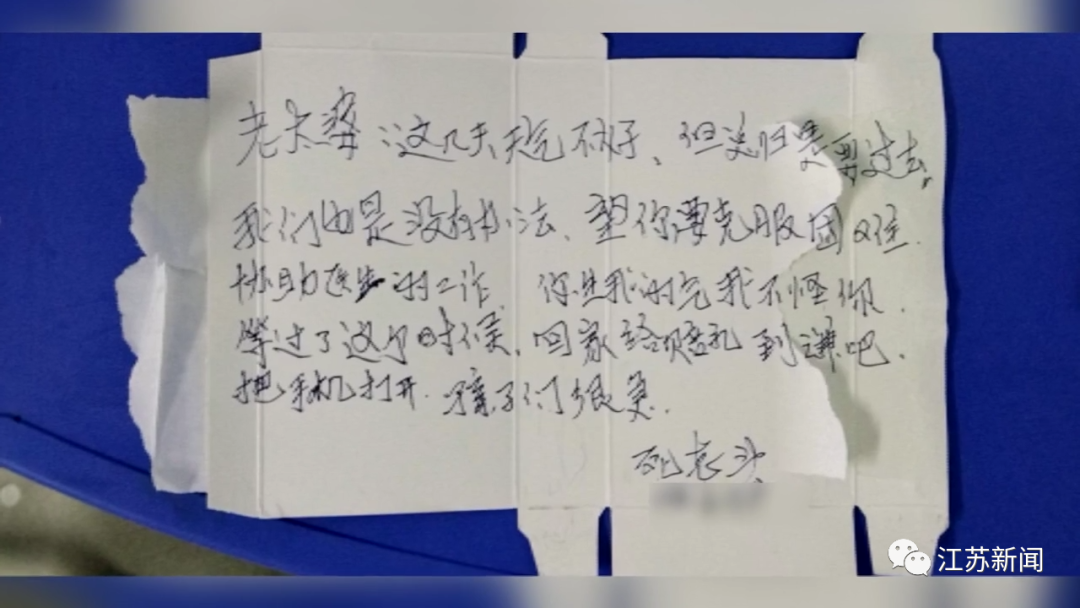 老太婆：这几天天气不好、但总归是要过去。
我们也是没有办法、望你要克服困难.
协助医生的工作. 你生我的气我不怪你.
等过了这个时候、回家给你赔礼到谦吧.
把手机打开. 孩子们很急.
死老头
江苏新闻